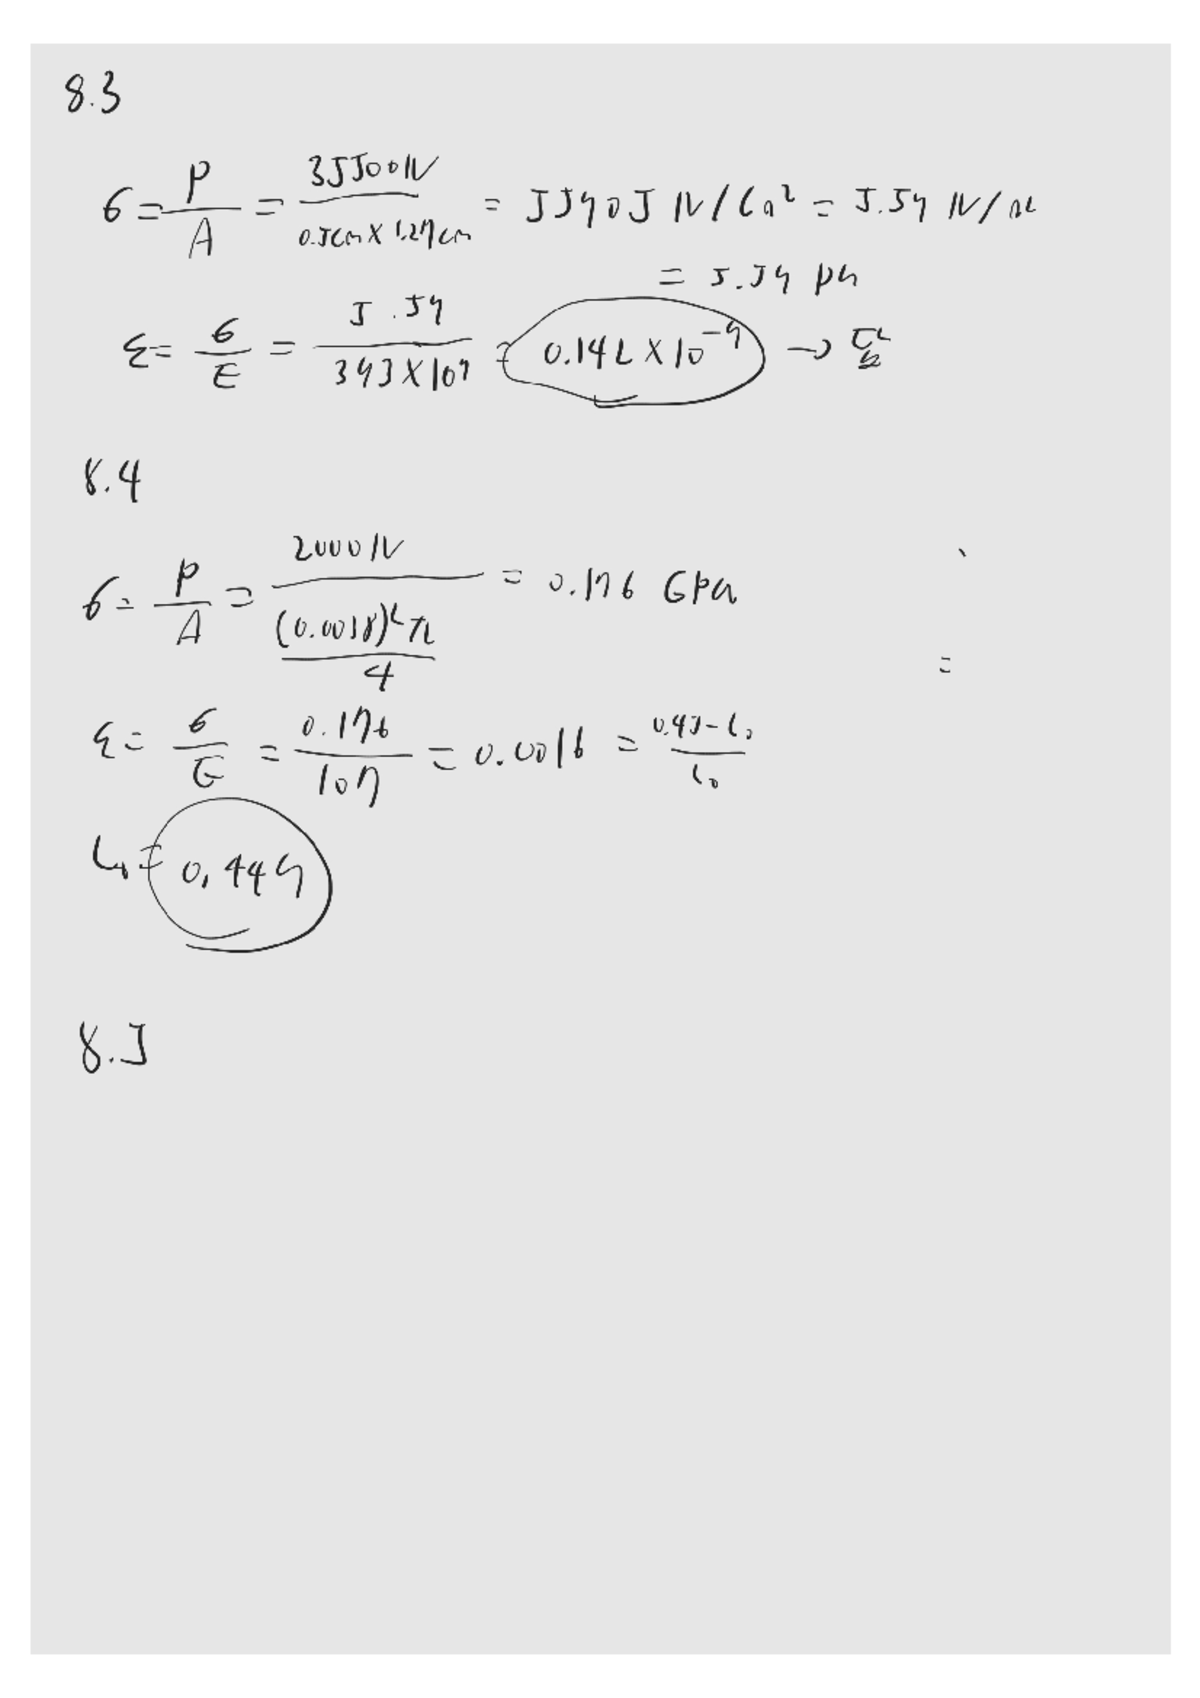 8.3
σ = P/A = 35500N / 0.5cm × 1.27cm = 55905 N/cm² = 5.59 N/m²
= 5.59 pa
ε = σ/E = 5.59 / 393×10⁹ = 0.142 × 10⁻⁹ →
8.4
σ = P/A = 2000N / (0.0038)²π / 4 = 0.176 GPa
=
ε = σ/E = 0.176 / 107 = 0.0016 = 0.45-l₀ / l₀
L₀ = 0.449
8.5